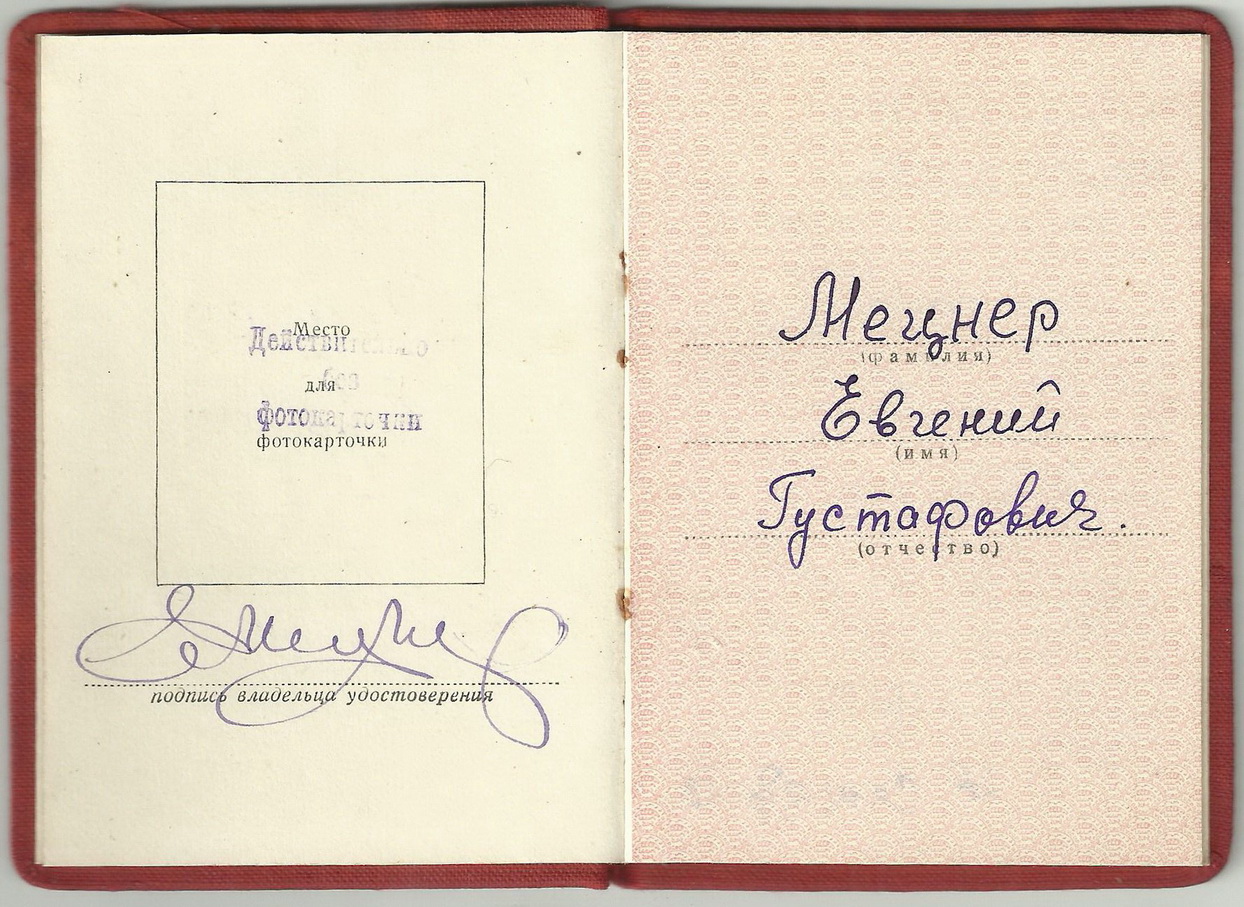 Место
Действительно
для
без
фотокарточки
фотокарточки
подпись владельца удостоверения
Мецнер
(фамилия)
Евгений
(имя)
Густафович.
(отчество)